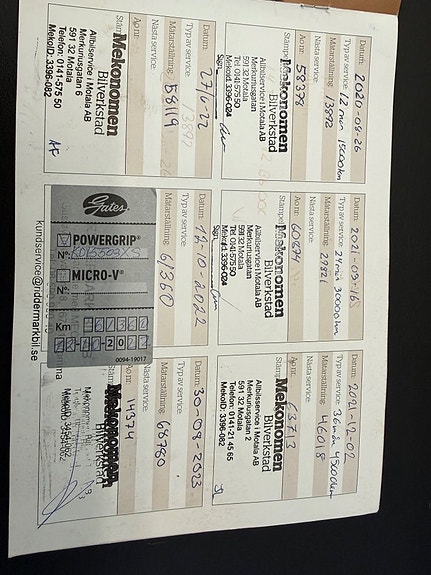 Datum: 2020-08-26
Typ av service: 12 mån 15000 km
Mätarställning: 13892
Nästa service:
Ao nr: 58378
Stämpel
Mekonomen
Bilverkstad
Allbilservice i Motala AB
Merkuriusgatan
591 32 Motala
Tel 0141-575 50
MekoID 3396-024
Sign:
Datum: 2021-03-16
Typ av service: 24 mån 30000 km
Mätarställning: 29821
Nästa service:
Ao nr: 60874
Stämpel
Mekonomen
Bilverkstad
Allbilservice i Motala AB
Merkuriusgatan
591 32 Motala
Tel 0141-575 50
MekoID 3396-024
Sign:
Datum: 2021-12-02
Typ av service: 36 mån 45000 km
Mätarställning: 46018
Nästa service:
Ao nr: 63713
Stämpel
Mekonomen
Bilverkstad
Allbilservice i Motala AB
Merkuriusgatan 2
591 32 Motala
Telefon: 0141-21 45 65
MekoID: 3396-082
Datum: 27/6-22
Typ av service:
Mätarställning: 58119
Nästa service:
Ao nr:
Stämpel
Mekonomen
Bilverkstad
Allbilservice i Motala AB
Merkuriusgatan 6
591 32 Motala
Telefon: 0141-575 50
MekoID: 3396-082
Datum: 12-10-2022
Typ av service:
Mätarställning: 61360
Gates
POWERGRIP®
N°: K015503XS
MICRO-V®
N°:
Km
0094-19017
kundservice@riddermarkbil.se
Datum: 30-08-2023
Typ av service:
Mätarställning: 68780
Nästa service:
Ao nr: 14374
Mekonomen
Bilverkstad